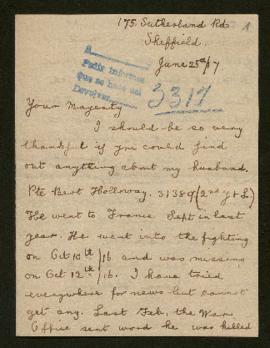 175 Sutherland Rd
Sheffield.
June 25th/17
3317
Your Majesty
I should be so very
thankful if you could find
out anything about my husband.
Pte Bert Holloway. 31389 (2nd Y & L)
He went to France Sept in last
year. He went into the fighting
on Oct 10th/16 and was missing
on Oct 12th/16. I have tried
everywhere for news but cannot
get any. Last Feb. the War
Office sent word he was killed